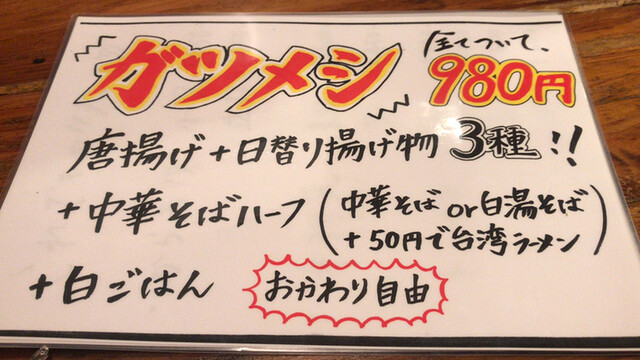 ガツメシ 全てついて、980円
唐揚げ+日替り揚げ物3種!!
+中華そばハーフ(中華そばor白湯そば
+50円で台湾ラーメン)
+白ごはん おかわり自由